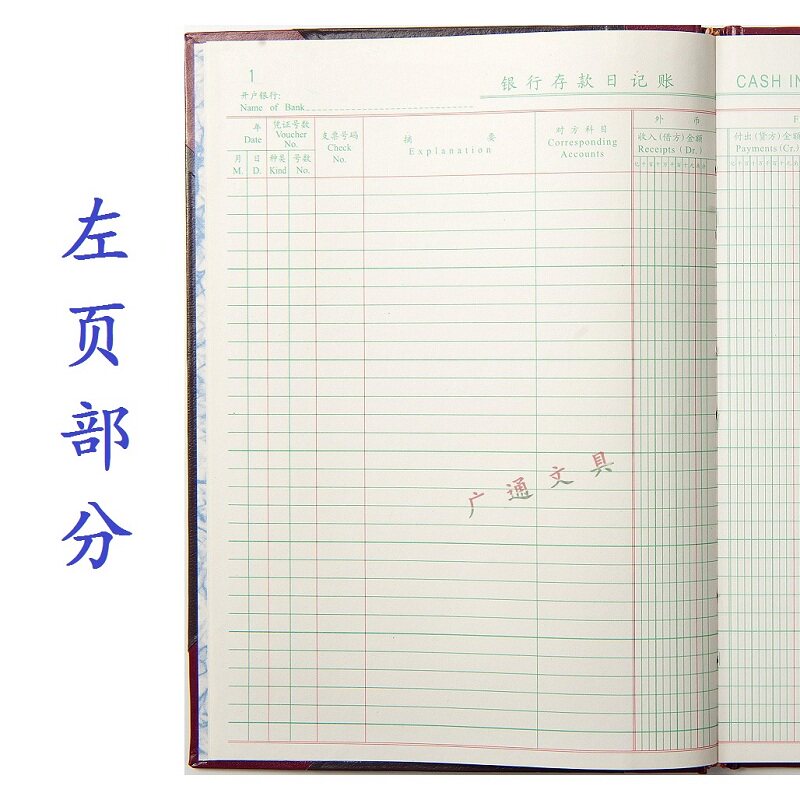 左页部分
1
银行存款日记账
CASH IN
开户银行:
Name of Bank
年
Date
凭证号数
Voucher
No.
支票号码
Check
No.
摘 要
Explanation
对方科目
Corresponding
Accounts
外 币
F
收入(借方)金额
Receipts (Dr.)
付出(贷方)金额
Payments (Cr.)
月
M.
日
D.
种类
Kind
号数
No.
广通文具